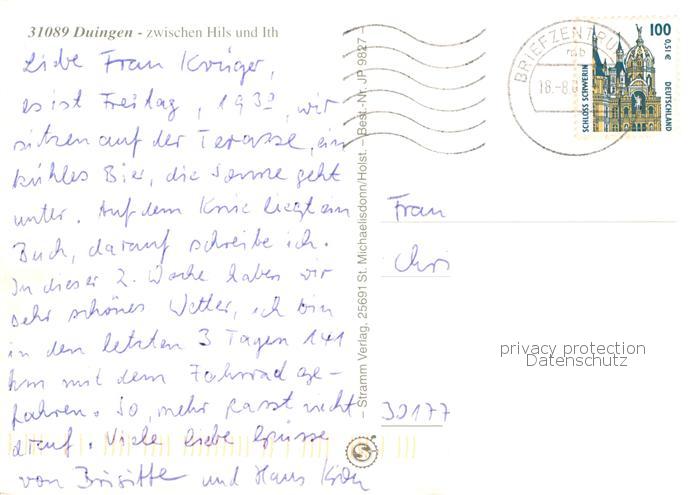 31089 Duingen - zwischen Hils und Ith
Liebe Frau Krüger,
es ist Freitag, 19³³, wir
sitzen auf der Terasse, ein
kühles Bier, die Sonne geht
unter. Auf dem Knie liegt ein
Buch, darauf schreibe ich.
In dieser 2. Woche haben wir
sehr schönes Wetter, ich bin
in den letzten 3 Tagen 141
km mit dem Fahrrad ge-
fahren. So, mehr passt nicht
drauf. Viele liebe Grüsse
von Brigitte und Hans
Stramm Verlag, 25691 St. Michaelisdonn/Holst. – Best.-Nr. JP 9827 –
BRIEFZENTRUM
18.-8.
100
0,51 €
SCHLOSS SCHWERIN
DEUTSCHLAND
Frau
Chri
privacy protection
Datenschutz
30177
S